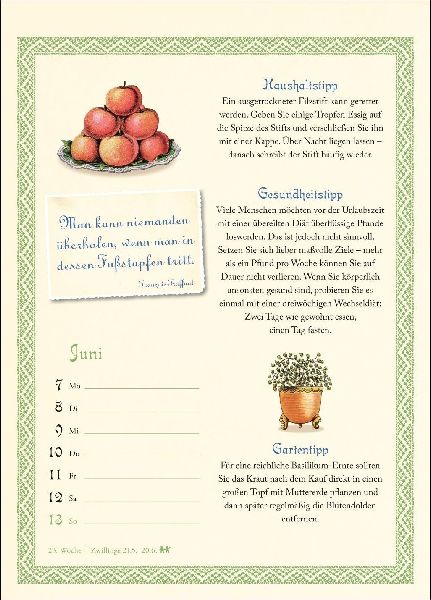 Haushaltstipp
Ein ausgetrockneter Filzstift kann gerettet
werden. Geben Sie einige Tropfen Essig auf
die Spitze des Stifts und verschließen Sie ihn
mit einer Kappe. Über Nacht liegen lassen –
danach schreibt der Stift häufig wieder.
Man kann niemanden
überholen, wenn man in
dessen Fußstapfen tritt.
Gesundheitstipp
Viele Menschen möchten vor der Urlaubszeit
mit einer übereilten Diät überflüssige Pfunde
loswerden. Das ist jedoch nicht sinnvoll.
Setzen Sie sich lieber maßvolle Ziele – mehr
als ein Pfund pro Woche können Sie auf
Dauer nicht verlieren. Wenn Sie körperlich
ansonsten gesund sind, probieren Sie es
einmal mit einer dreiwöchigen Wechseldiät:
Zwei Tage wie gewohnt essen,
einen Tag fasten.
Juni
7 Mo
8 Di
9 Mi
10 Do
11 Fr
12 Sa
13 So
23. Woche Zwillinge 21.5.–20.6.
Gartentipp
Für eine reichliche Basilikum-Ernte sollten
Sie das Kraut nach dem Kauf direkt in einen
großen Topf mit Muttererde pflanzen und
dann später regelmäßig die Blütendolden
entfernen.